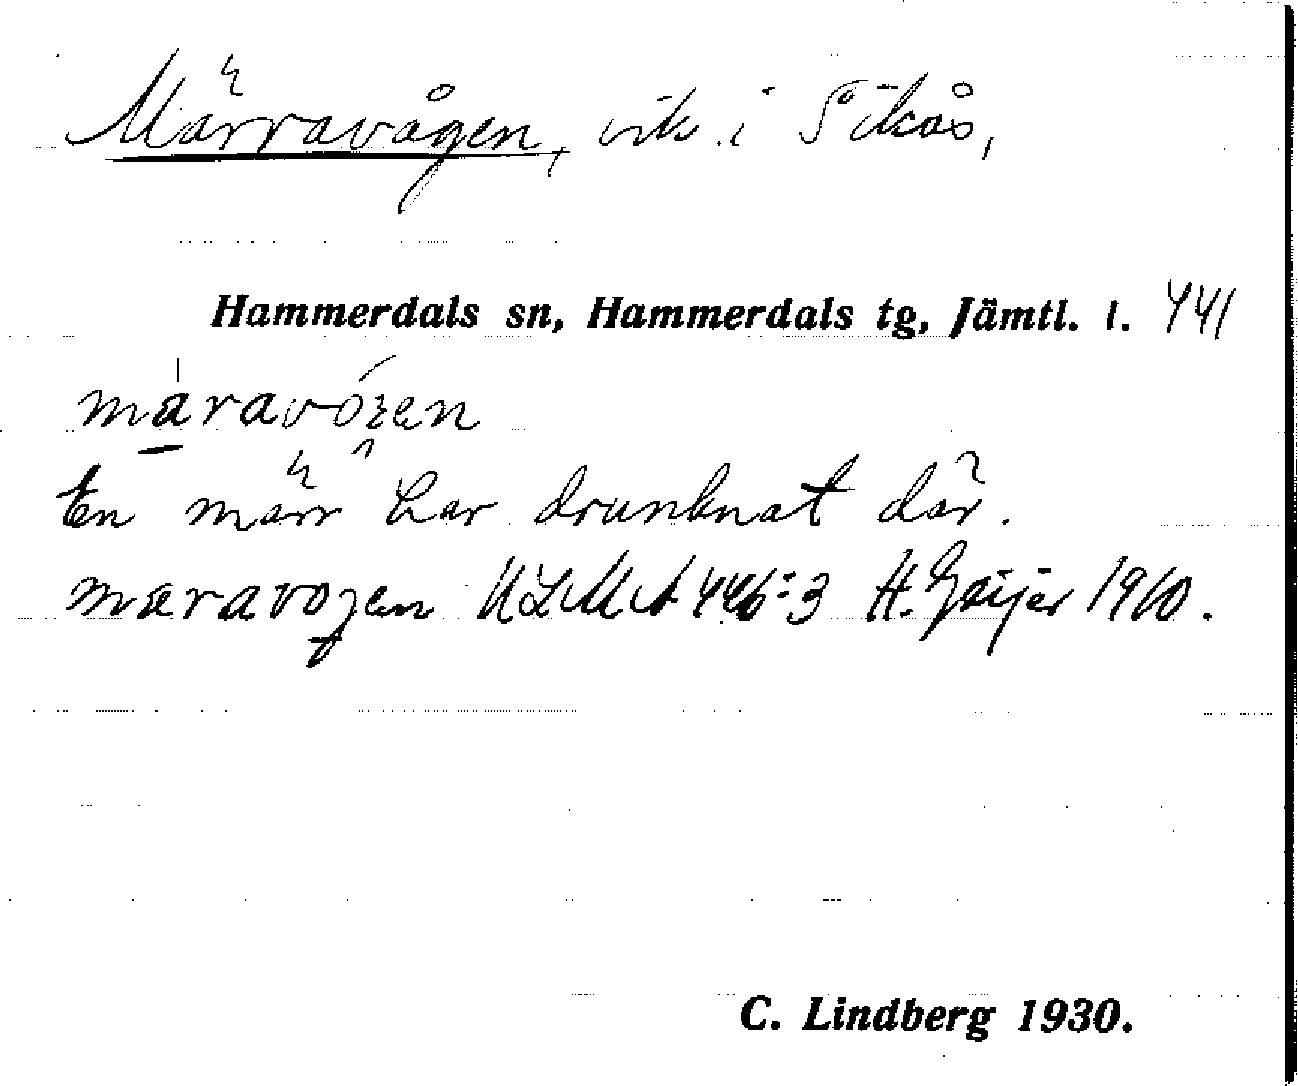 Märravågen, vik i Sikås,
Hammerdals sn, Hammerdals tg, Jämtl. l. 441
maravóʒen
En märr har drunknat där.
maravoʒen ULMA 446:3 H. Geijer 1910.
C. Lindberg 1930.